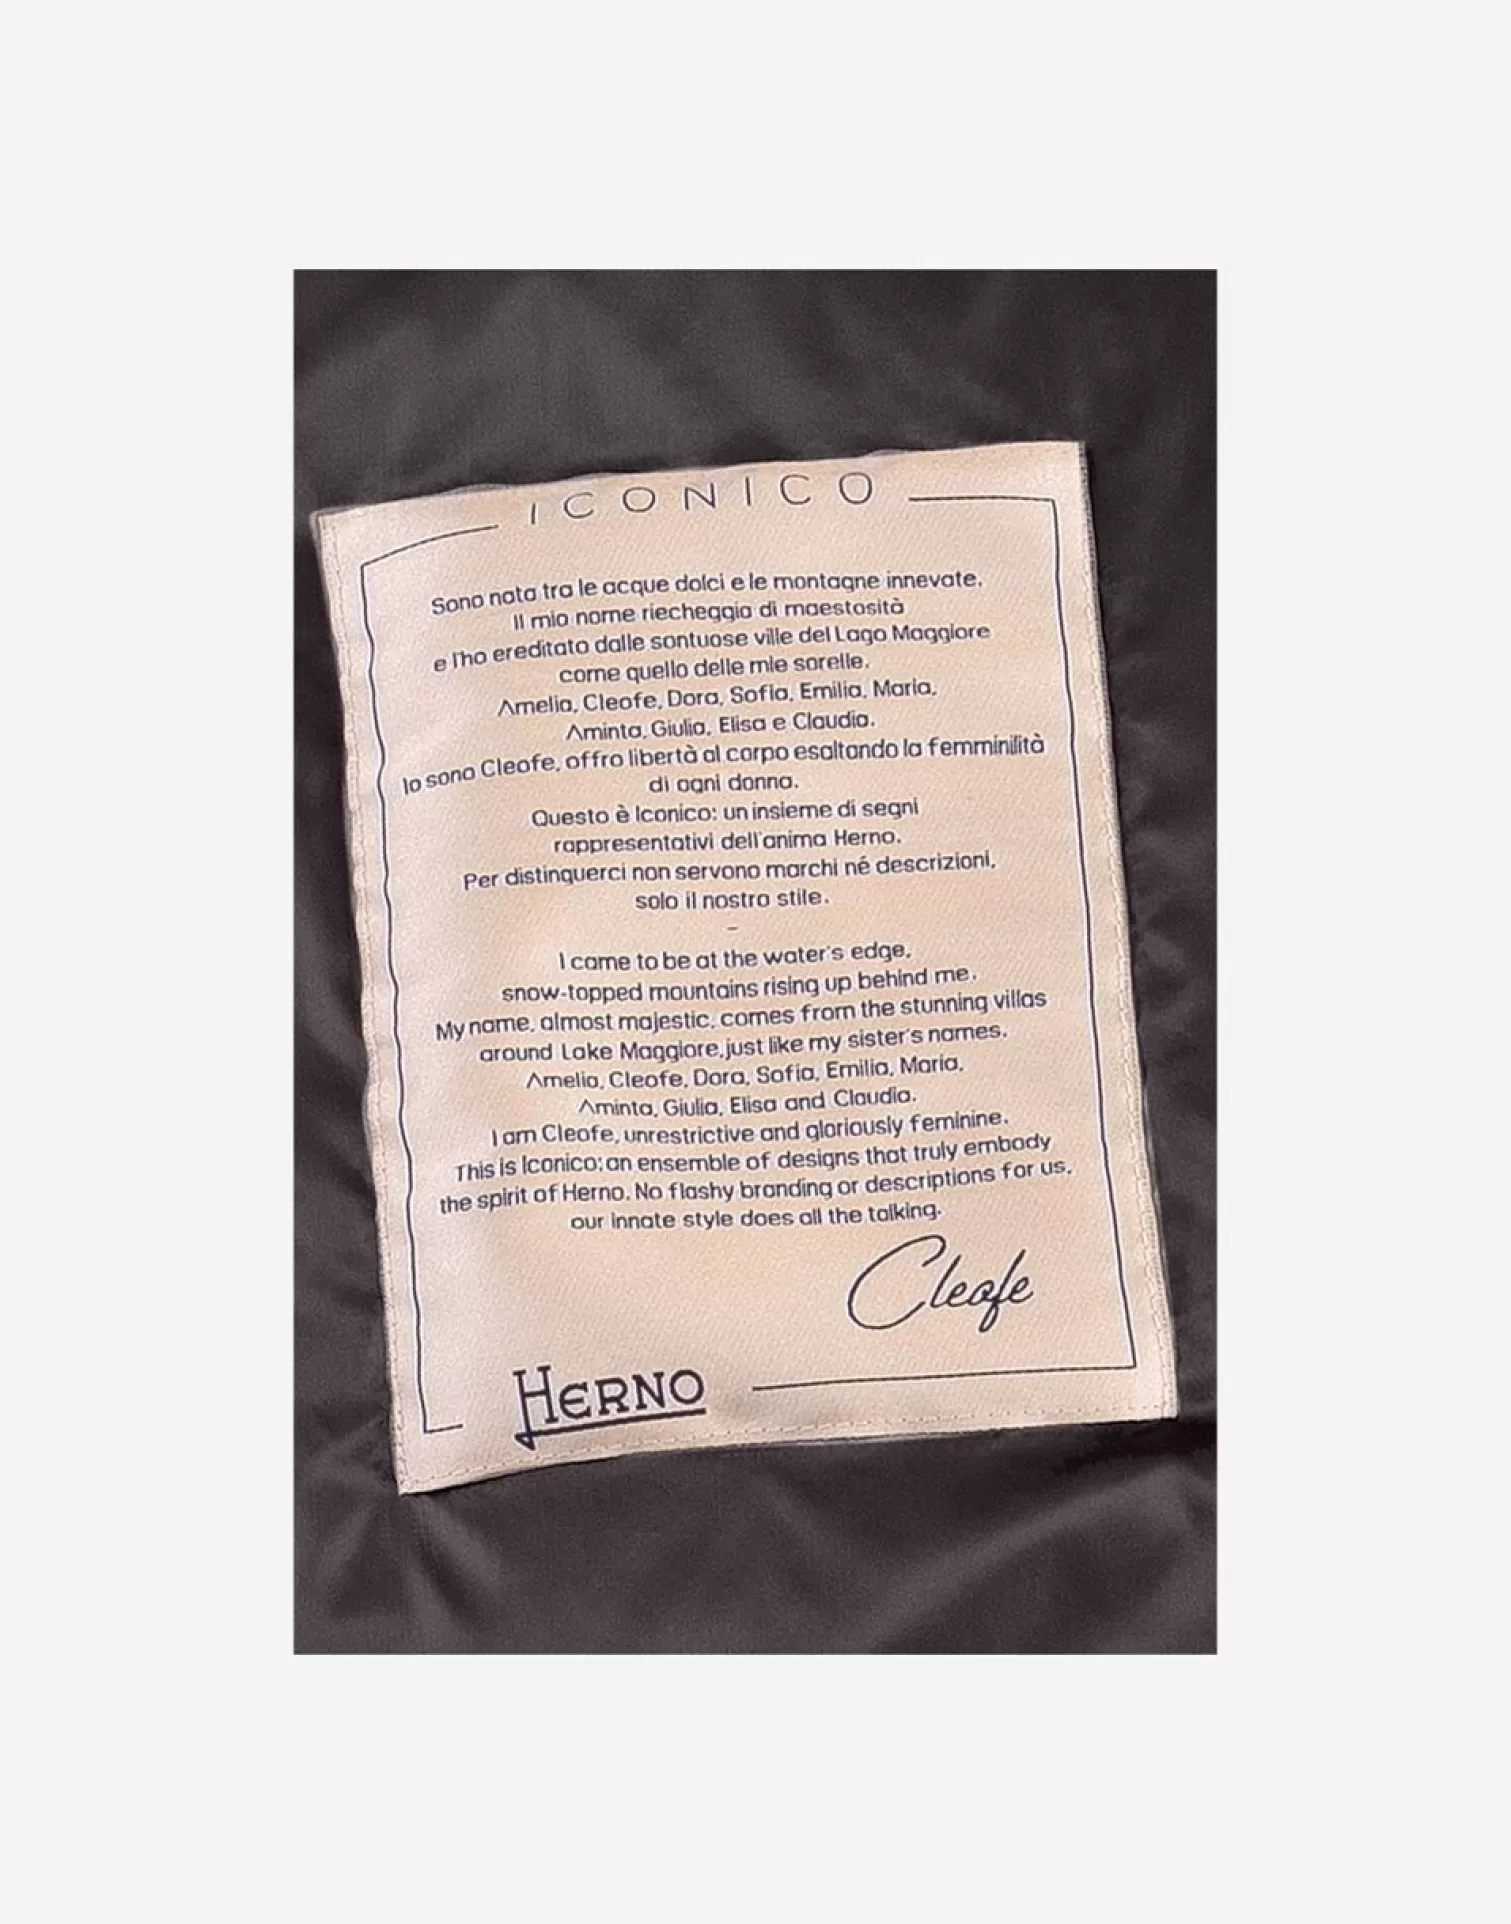 ICONICO
Sono nata tra le acque dolci e le montagne innevate.
Il mio nome riecheggia di maestosità
e l'ho ereditato dalle sontuose ville del Lago Maggiore
come quello delle mie sorelle.
Amelia, Cleofe, Dora, Sofia, Emilia, Maria,
Aminta, Giulia, Elisa e Claudia.
Io sono Cleofe, offro libertà al corpo esaltando la femminilità
di ogni donna.
Questo è Iconico: un insieme di segni
rappresentativi dell'anima Herno.
Per distinguerci non servono marchi né descrizioni,
solo il nostro stile.
–
I came to be at the water's edge,
snow-topped mountains rising up behind me.
My name, almost majestic, comes from the stunning villas
around Lake Maggiore, just like my sister's names.
Amelia, Cleofe, Dora, Sofia, Emilia, Maria,
Aminta, Giulia, Elisa and Claudia.
I am Cleofe, unrestrictive and gloriously feminine.
This is Iconico: an ensemble of designs that truly embody
the spirit of Herno. No flashy branding or descriptions for us,
our innate style does all the talking.
Cleofe
HERNO